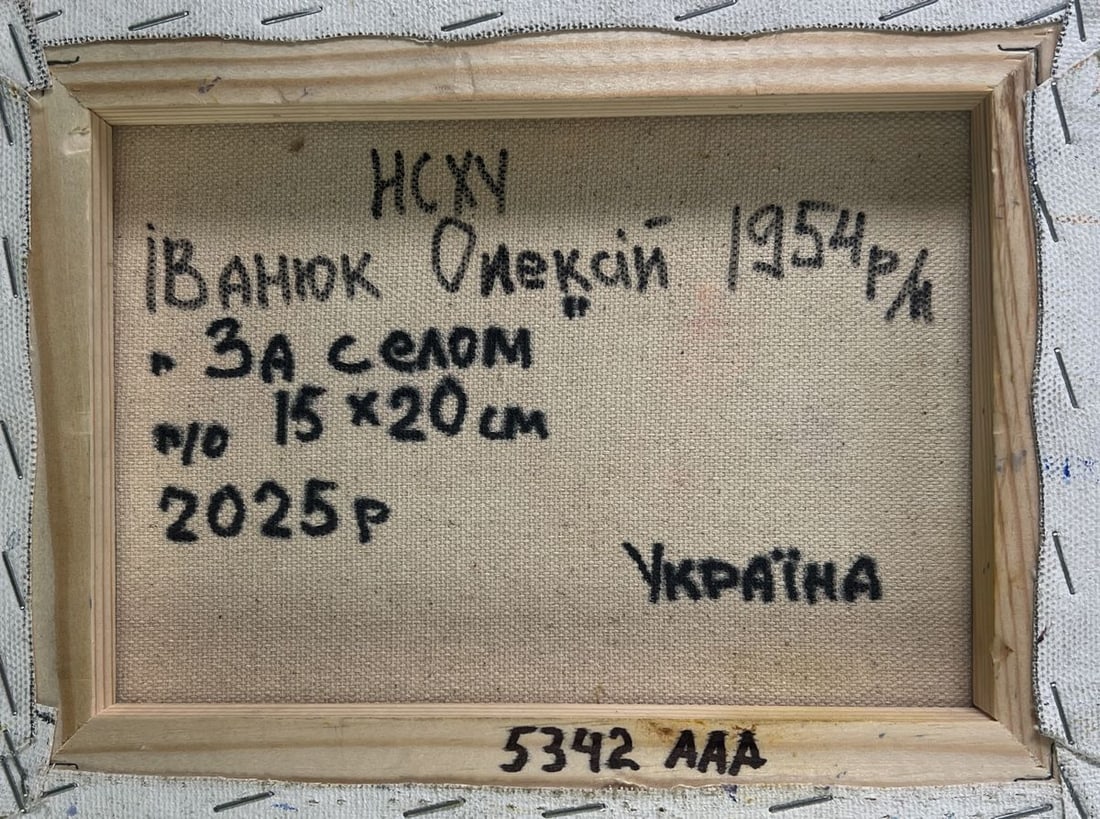 НСХУ
Іванюк Олексій 1954 р/н
„За селом"
п/о 15×20 см
2025р
Україна
5342 ААА